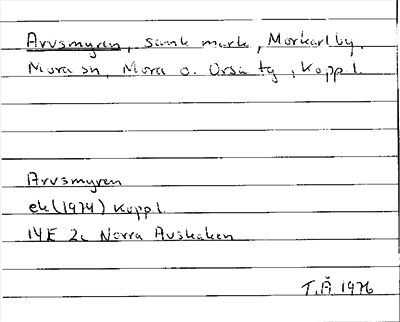 Arvsmyren, sank mark, Morkarlby,
Mora sn, Mora o. Orsa tg, Koppl.
Arvsmyren
ek (1974) Koppl.
14E 2c Norra
T.Å 1976